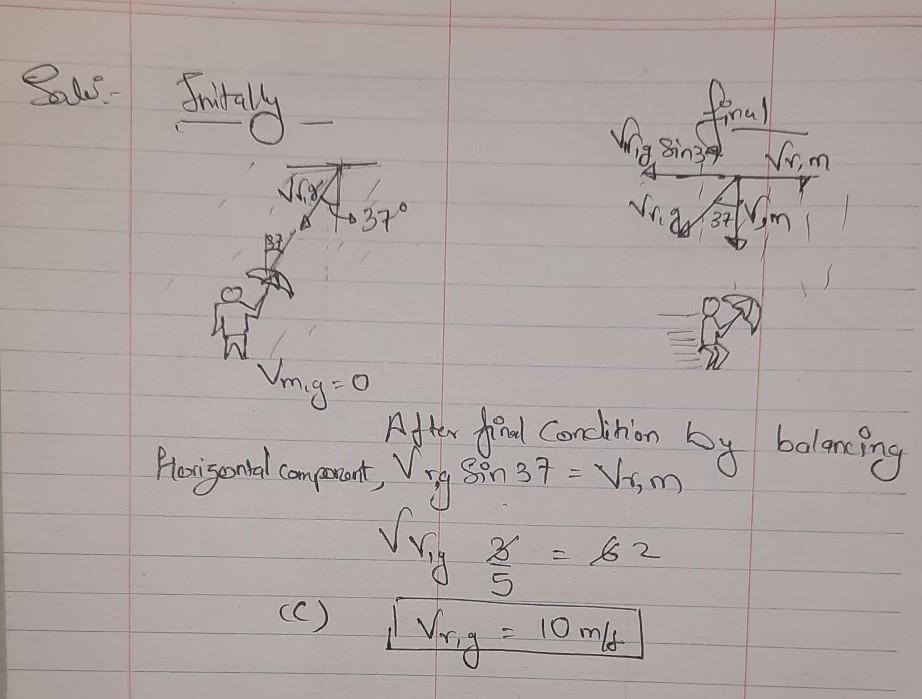 Soln:- Initally
final
Vr,g Sin37 Vr,m
Vr,g 37°
Vr,g 37 Vr,m
37
Vm,g = 0
After final Condition by balancing
Horizontal component, Vr,g Sin 37 = Vr,m
Vr,g 3/5 = 6 2
(C) Vr,g = 10 m/s